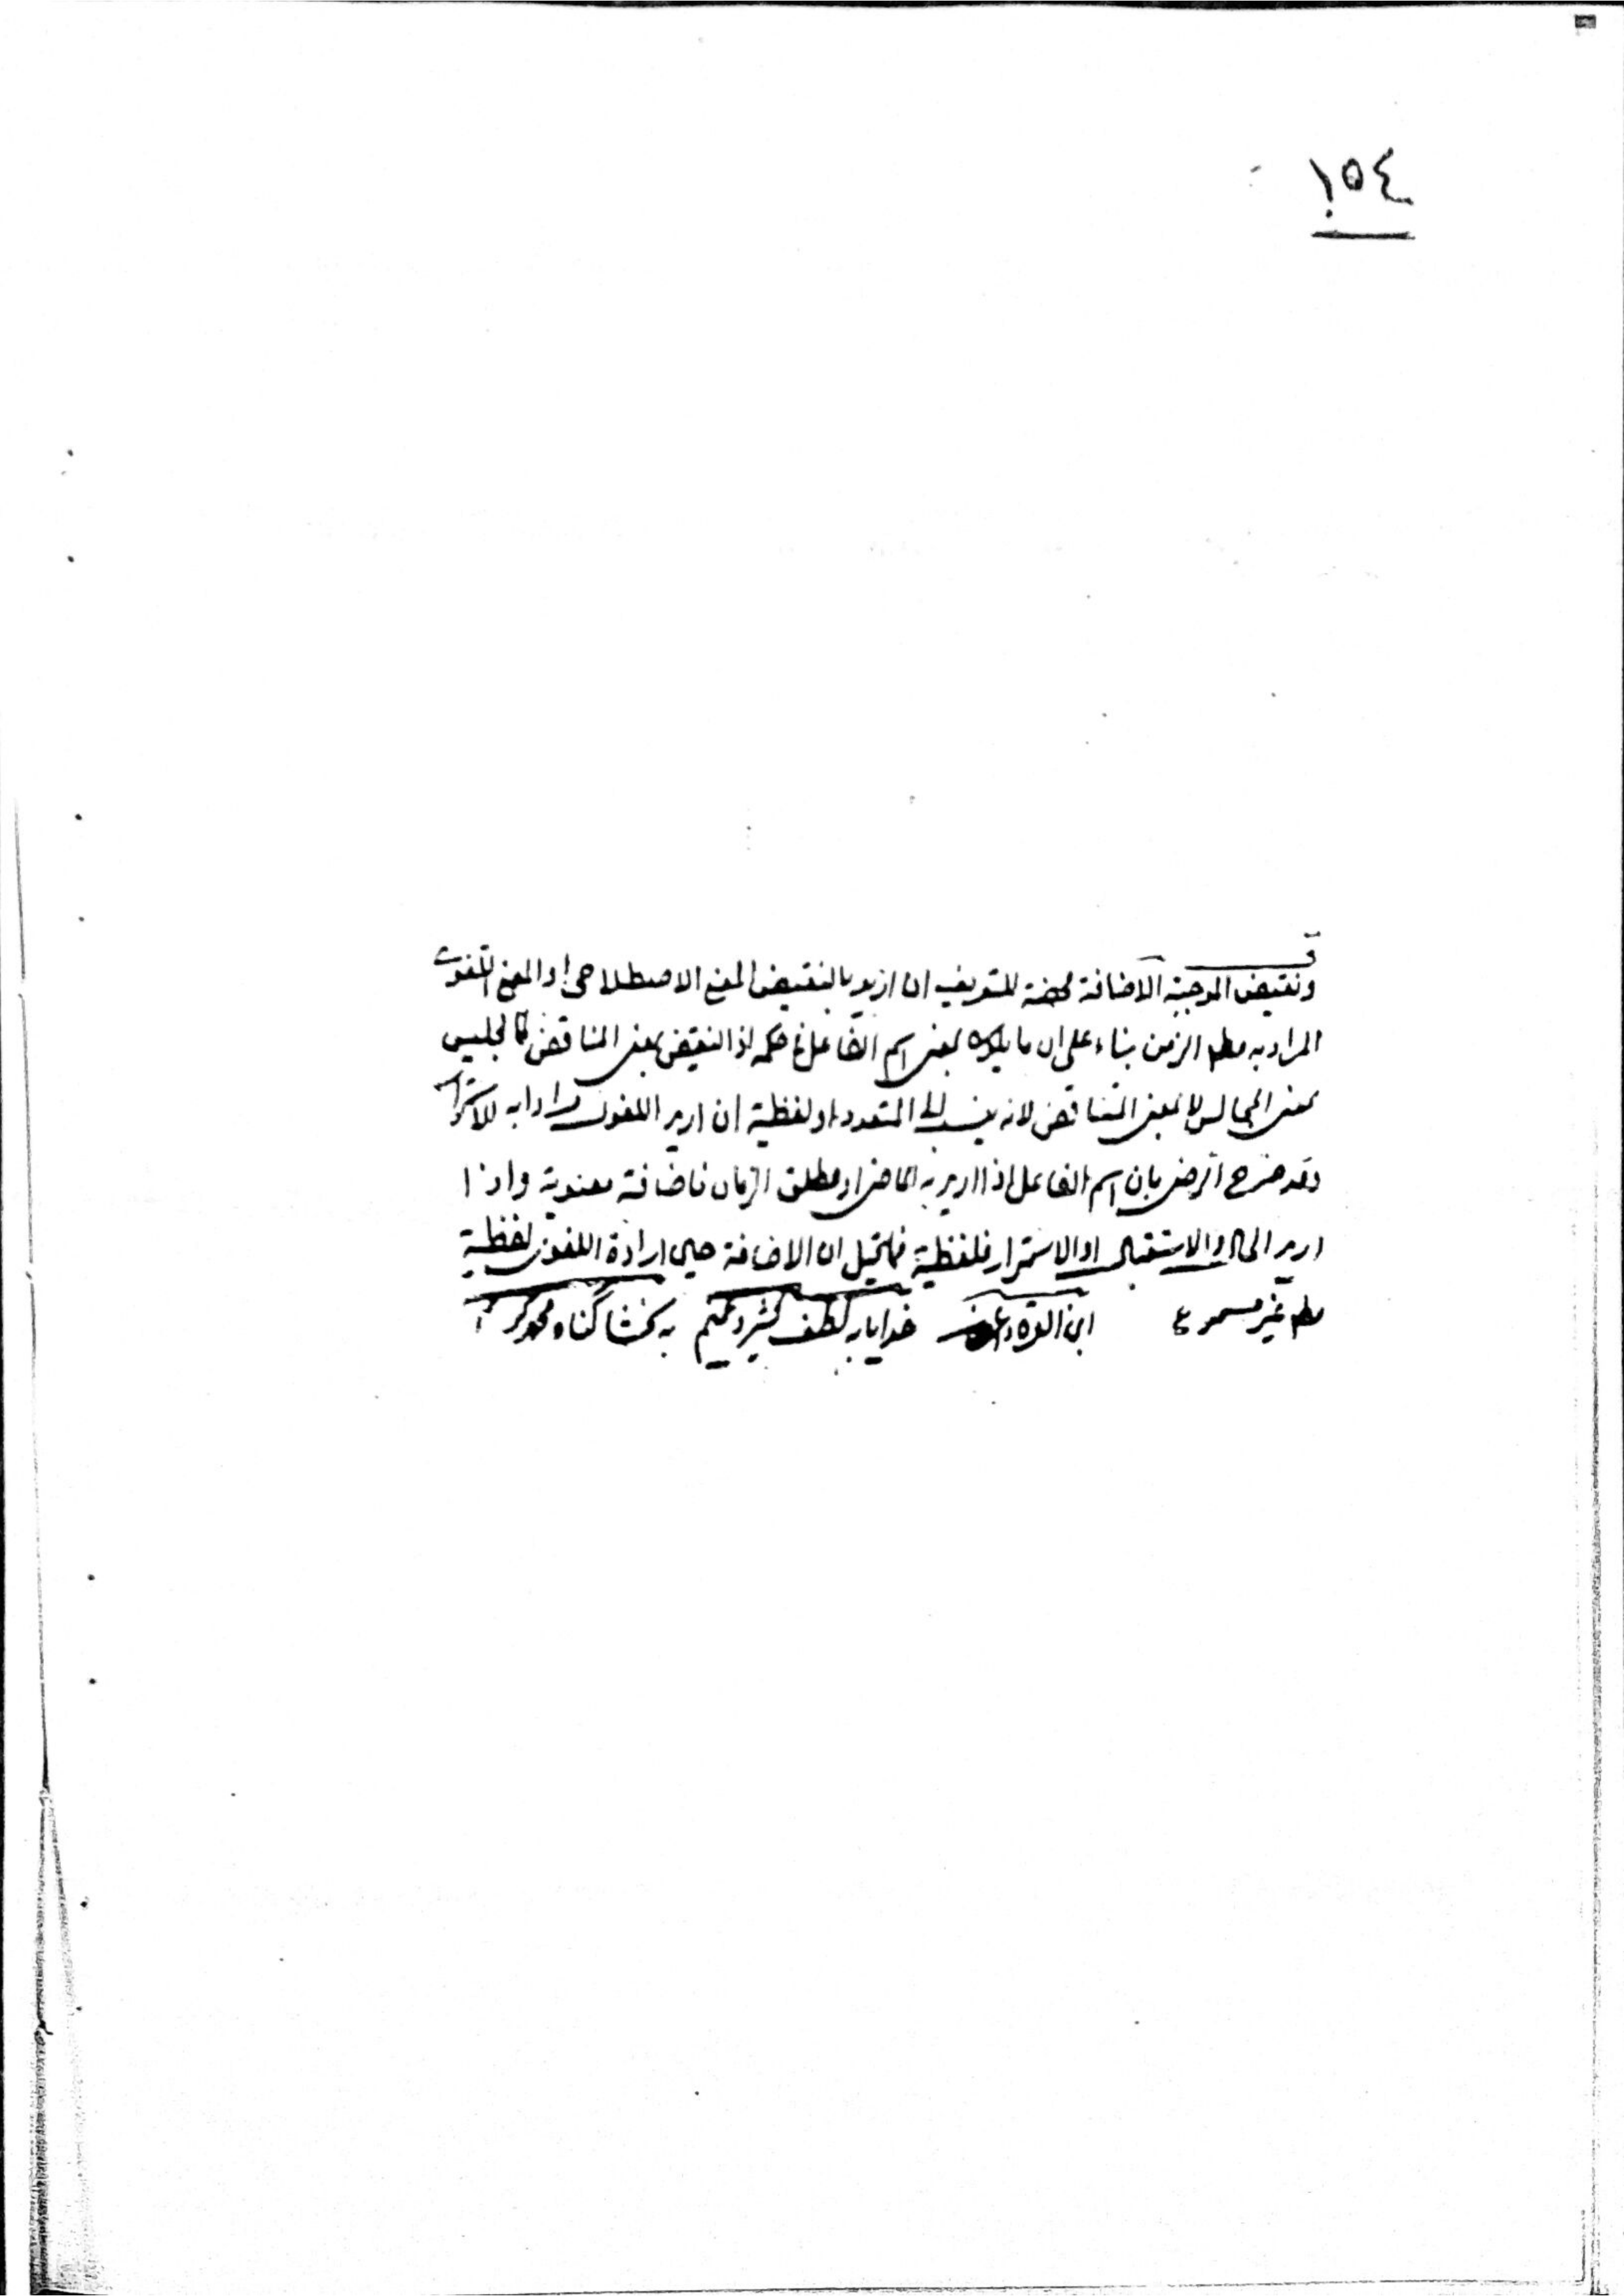 ١٥٤
ق
ونقيض الموجبة الاضافة محضة للتعريف ان اريد بالنقيض المعنى الاصطلاحى او المعنى اللغوى
المراد به مطلق الزمن بناء على ان ما يكون بمعنى اسم الفاعل فى حكمه اذ النقيض بمعنى المناقض كالجليس
بمعنى المجالس لا بمعنى المتناقض لانه ينسب الى المتعدد او لفظية ان اريد اللغوى مرادا به للاستمرار
وقد صرح الرضى بان اسم الفاعل اذا اريد به الماضى او مطلق الزمان فاضافته معنوية واذا
اريد الحال والاستقبال او الاستمرار فلفظية فما تخيل ان الاضافة حين ارادة اللغوى لفظية
مطلقا غير مسموع ابن القره داغى خدايا به لطف به بخشا گناه